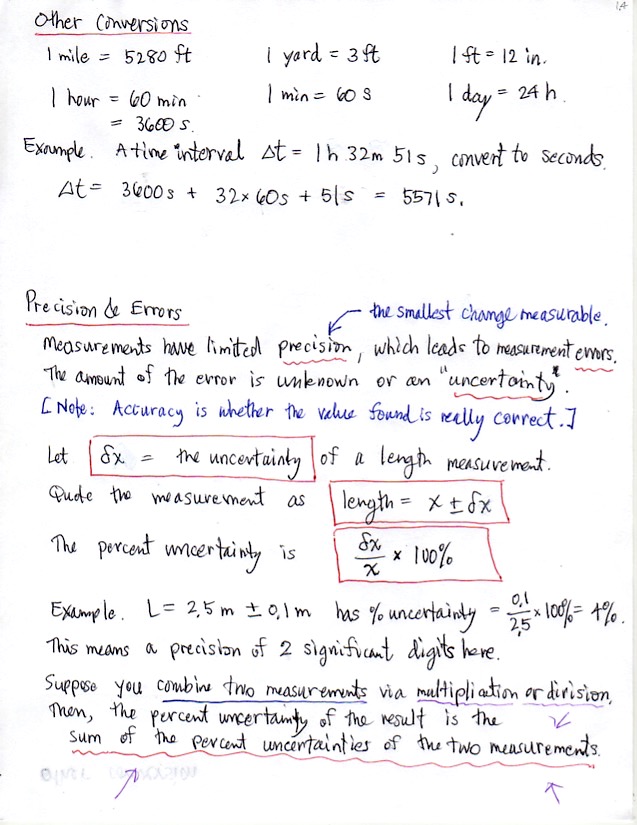 1.4
Other Conversions
1 mile = 5280 ft 1 yard = 3 ft 1 ft = 12 in.
1 hour = 60 min 1 min = 60 s 1 day = 24 h.
= 3600 s.
Example. A time interval Δt = 1h 32m 51s, convert to seconds.
Δt = 3600s + 32×60s + 51s = 5571 s.
Precision & Errors
the smallest change measurable.
Measurements have limited precision, which leads to measurement errors.
The amount of the error is unknown or an "uncertainty".
[Note: Accuracy is whether the value found is really correct.]
Let δx = the uncertainty of a length measurement.
Quote the measurement as length = x ± δx
The percent uncertainty is δx/x × 100%
Example. L = 2.5 m ± 0.1 m has % uncertainty = 0.1/2.5 × 100% = 4%.
This means a precision of 2 significant digits here.
Suppose you combine two measurements via multiplication or division.
Then, the percent uncertainty of the result is the
sum of the percent uncertainties of the two measurements.